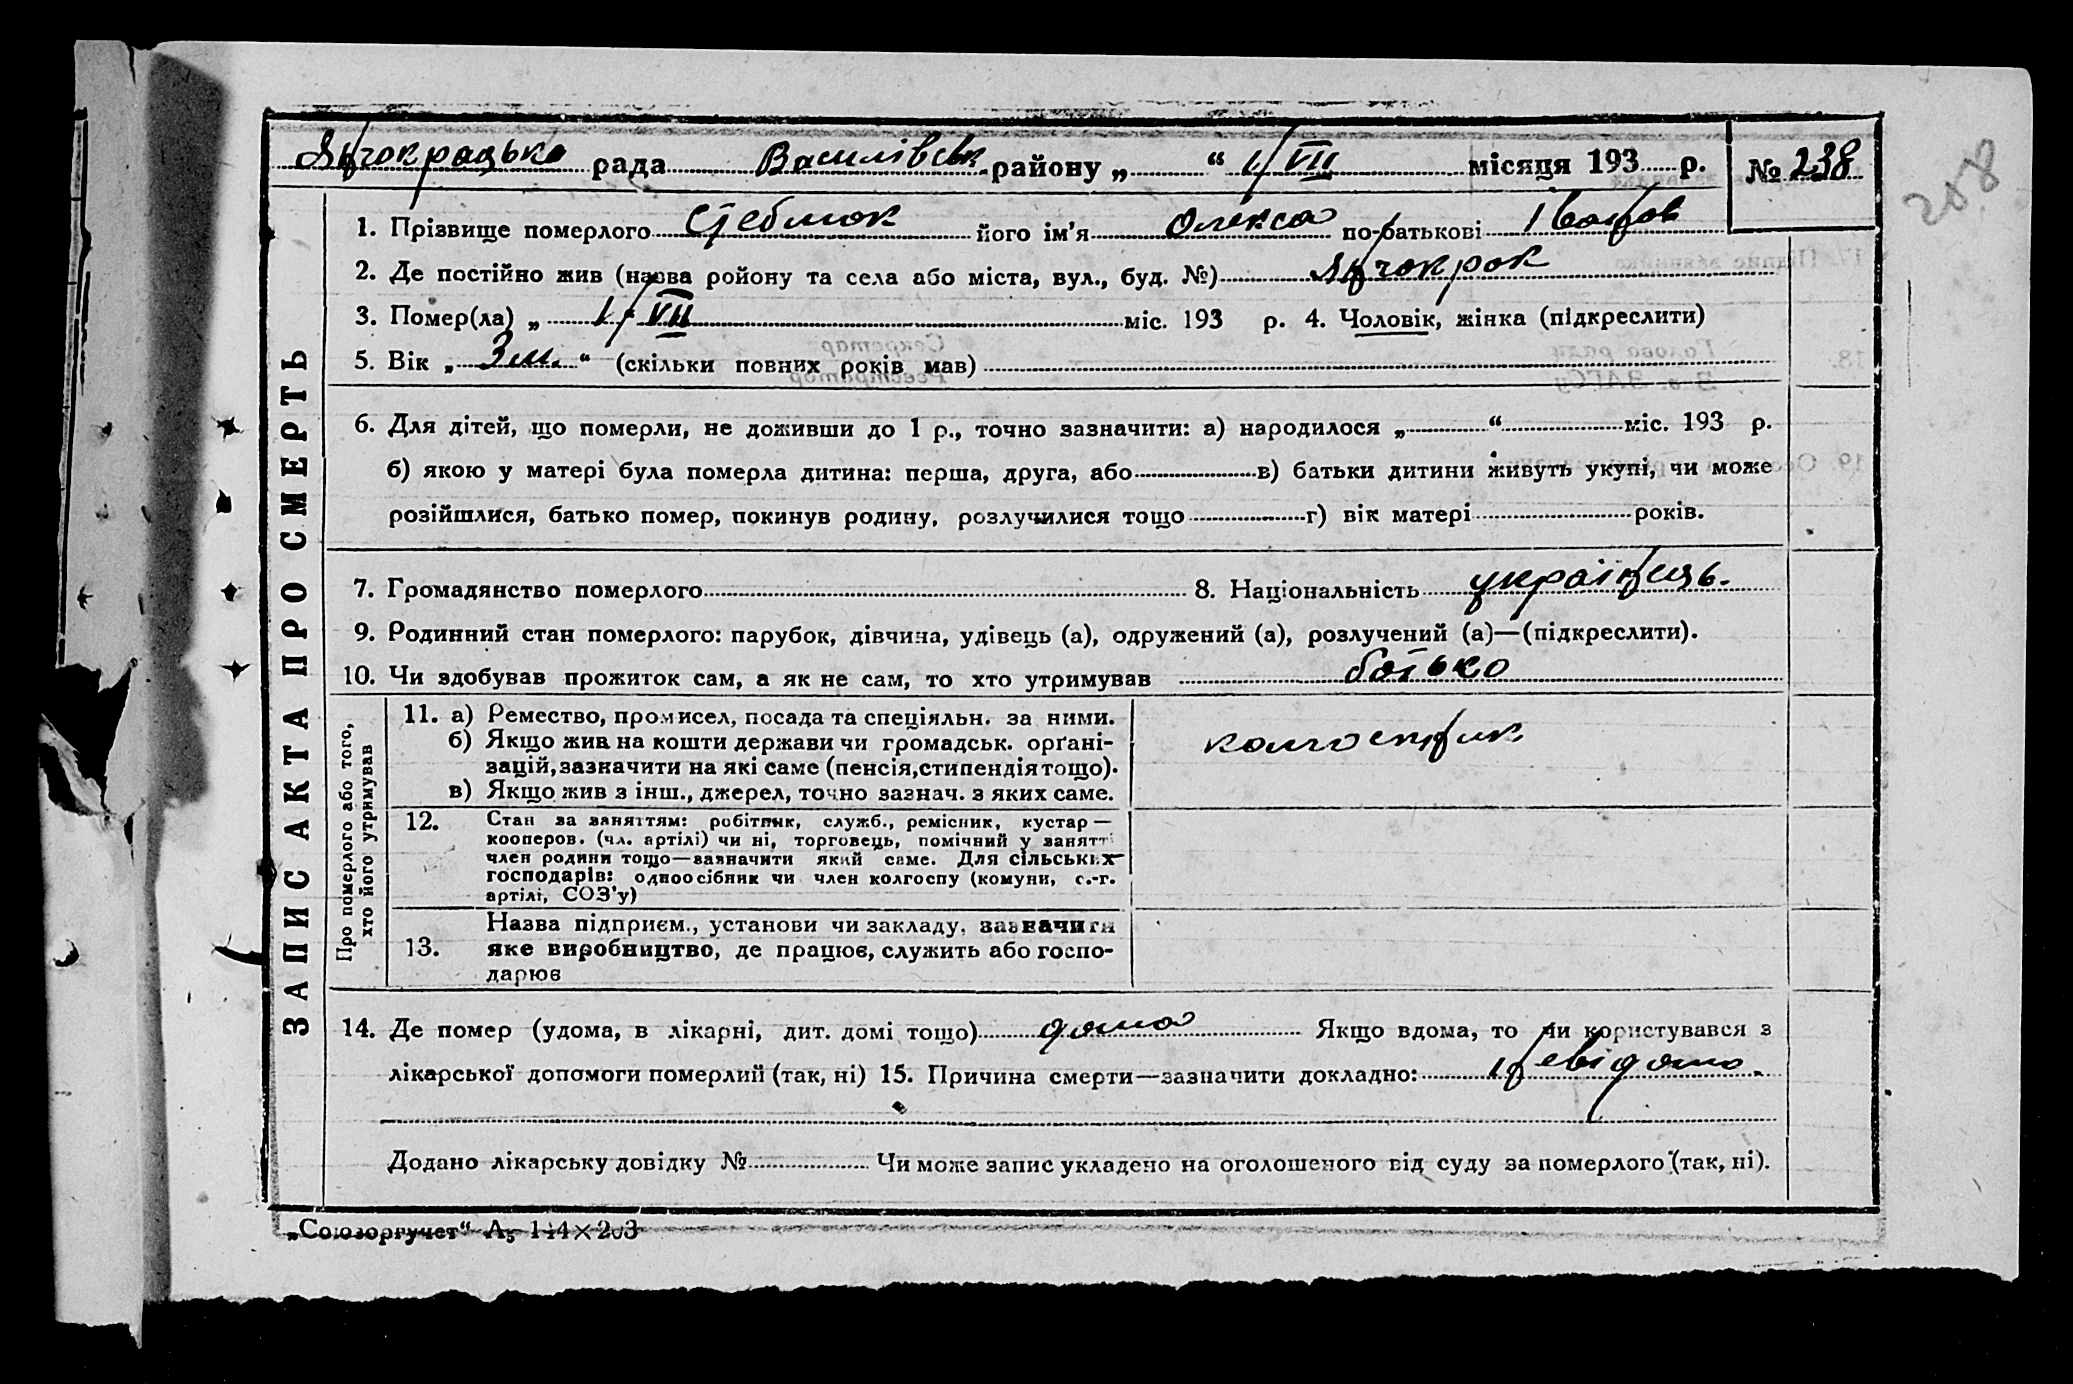 Янчокрацька рада Василівськ району „ “ 1/VII місяця 193 р. № 238
208
1. Прізвище померлого Стеблюк його ім’я Олекса по-батькові Іванов
2. Де постійно жив (назва ройону та села або міста, вул., буд. №) Янчокрок
3. Помер(ла) „ 1/VII міс. 193 р. 4. Чоловік, жінка (підкреслити)
5. Вік „ 3 м. “ (скільки повних років мав)
6. Для дітей, що померли, не доживши до 1 р., точно зазначити: а) народилося „ “ міс. 193 р.
б) якою у матері була померла дитина: перша, друга, або в) батьки дитини живуть укупі, чи може
розійшлися, батько помер, покинув родину, розлучилися тощо г) вік матері років.
7. Громадянство померлого 8. Національність українець.
9. Родинний стан померлого: парубок, дівчина, удівець (а), одружений (а), розлучений (а)—(підкреслити).
10. Чи здобував прожиток сам, а як не сам, то хто утримував батько
Про померлого або того, хто його утримував
11. а) Ремество, промисел, посада та спеціяльн. за ними.
б) Якщо жив на кошти держави чи громадськ. орґані-
зацій, зазначити на які саме (пенсія, стипендія тощо).
в) Якщо жив з інш., джерел, точно зазнач. з яких саме.
колгоспник
12. Стан за заняттям: робітник, служб., ремісник, кустар—
кооперов. (чл. артілі) чи ні, торговець, помічний у занятті
член родини тощо—зазначити який саме. Для сільських
господарів: одноосібник чи член колгоспу (комуни, с.-г.
артілі, СОЗ’у)
13. Назва підприєм., установи чи закладу, зазначити
яке виробництво, де працює, служить або госпо-
дарює
14. Де помер (удома, в лікарні, дит. домі тощо) дома Якщо вдома, то чи користувався з
лікарської допомоги померлий (так, ні) 15. Причина смерти—зазначити докладно: невідомо.
Додано лікарську довідку № Чи може запис укладено на оголошеного від суду за померлого (так, ні).
ЗАПИС АКТА ПРО СМЕРТЬ
„Союзоргучет“ А₅ 144×203